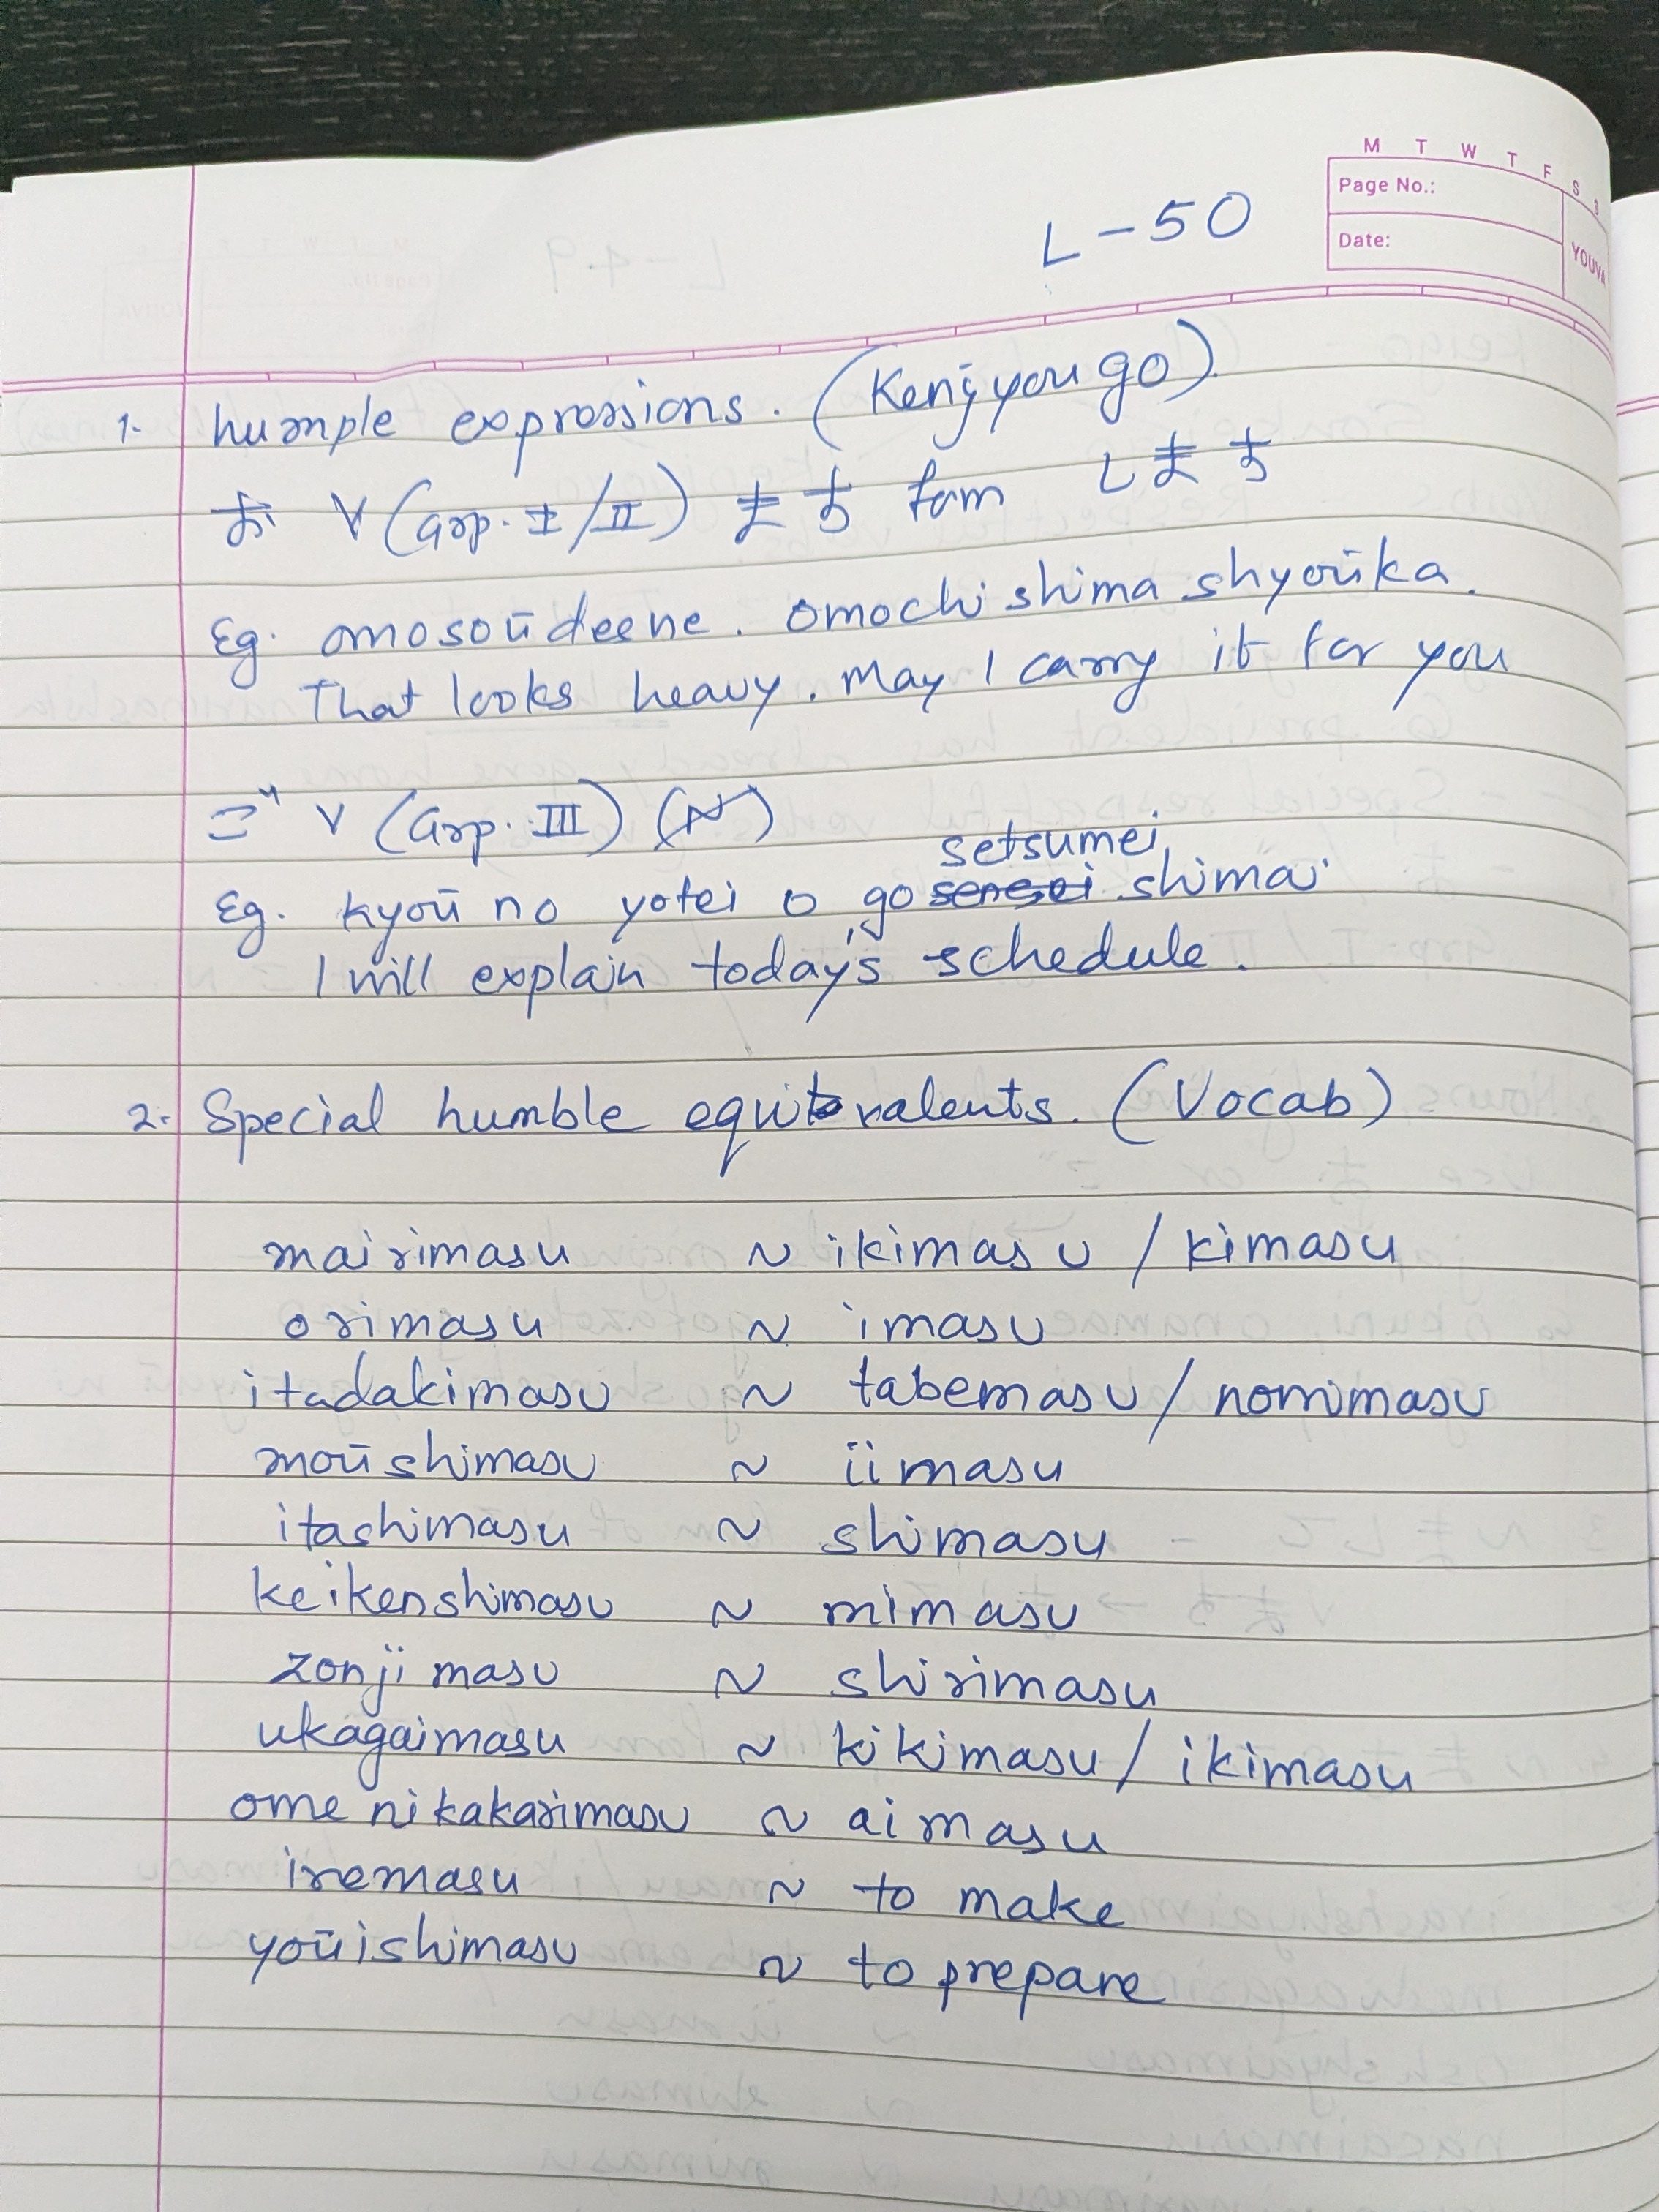 M T W T F S S
Page No.:
Date:
YOUVA
L-50
1. humple expressions. (Kenjyougo)
お V (Grp. I/II) ます form します
Eg. omosoūdeene. omochi shima shyoūka.
That looks heavy. May I carry it for you
ご V (Grp. III) (N)
setsumei
Eg. kyoū no yotei o go sensei shimas
I will explain today's schedule.
2. Special humble equivalents. (Vocab)
mairimasu ~ ikimasu / kimasu
orimasu ~ imasu
itadakimasu ~ tabemasu / nomimasu
moūshimasu ~ iimasu
itashimasu ~ shimasu
keikenshimasu ~ mimasu
zonjimasu ~ shirimasu
ukagaimasu ~ kikimasu / ikimasu
ome ni kakarimasu ~ aimasu
iremasu ~ to make
yoūishimasu ~ to prepare